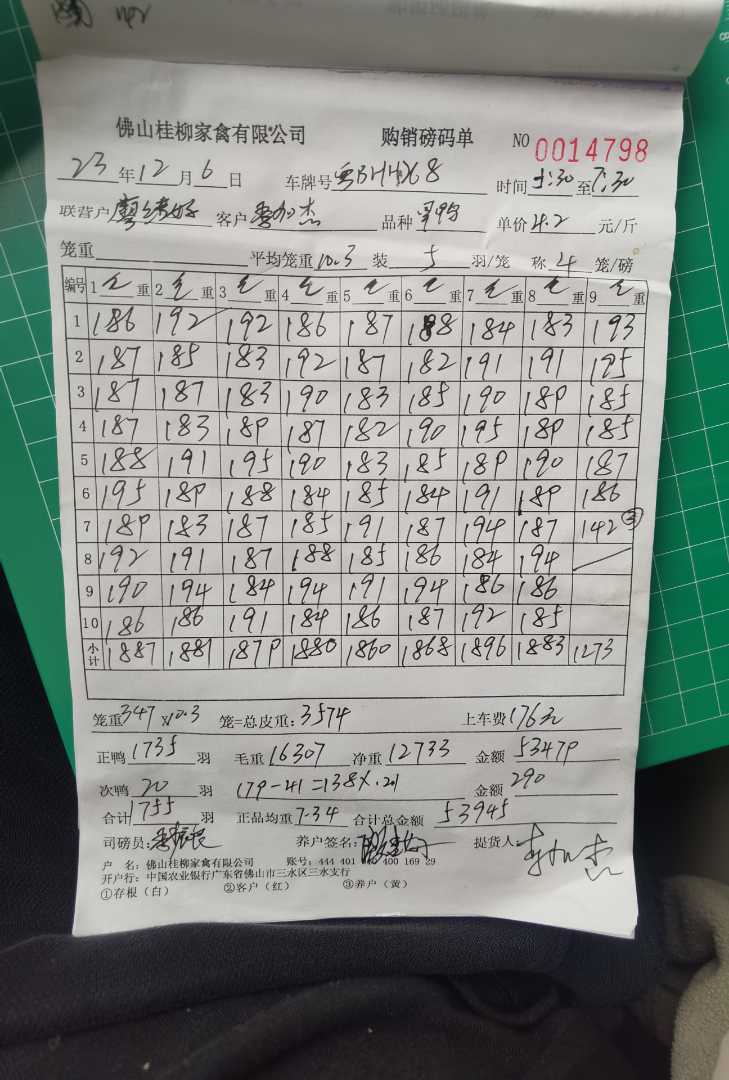 佛山桂柳家禽有限公司 购销磅码单 NO 0014798
23年12月6日 车牌号 时间5:30至7:30
联营户 客户 品种 单价4.2元/斤
笼重 平均笼重10.3 装5羽/笼 称4笼/磅
编号 1毛重 2毛重 3毛重 4毛重 5毛重 6毛重 7毛重 8毛重 9毛重
1 186 192 192 186 187 188 184 183 193
2 187 185 183 192 187 182 191 191 195
3 187 187 183 190 183 185 190 189 185
4 187 183 189 187 182 190 195 189 185
5 188 191 195 190 183 185 189 190 187
6 195 189 188 184 185 184 191 189 186
7 189 183 187 185 191 187 194 187 142③
8 192 191 187 188 185 186 184 194
9 190 194 184 194 191 194 186 186
10 186 186 191 184 186 187 192 185
小计 1887 1881 1879 1880 1860 1868 1896 1883 1273
笼重347×10.3 笼=总皮重:3574 上车费176元
正鸭1735羽 毛重16307 净重12733 金额53479
次鸭20羽 179-41=138×.21 金额290
合计1755羽 正品均重7.34 合计总金额53945
司磅员: 养户签名: 提货人:
户 名:佛山桂柳家禽有限公司 账号:444 401 400 169 29
开户行:中国农业银行广东省佛山市三水区三水支行
①存根(白) ②客户(红) ③养户(黄)